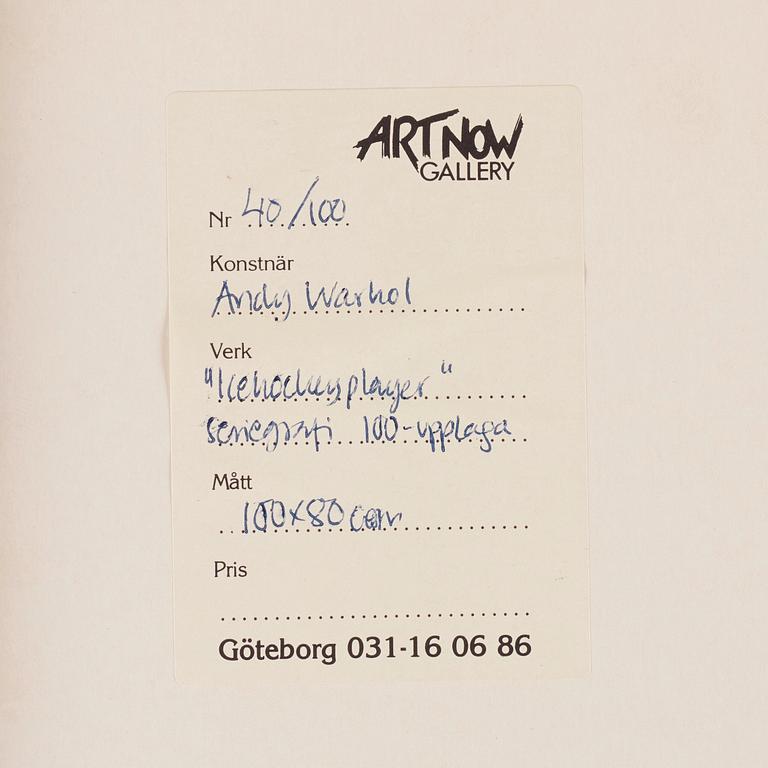 ART NOW
GALLERY
Nr 40/100
Konstnär
Andy Warhol
Verk
"Icehockeyplayer"
seriegrafi 100-upplaga
Mått
100x80 cm
Pris
Göteborg 031-16 06 86